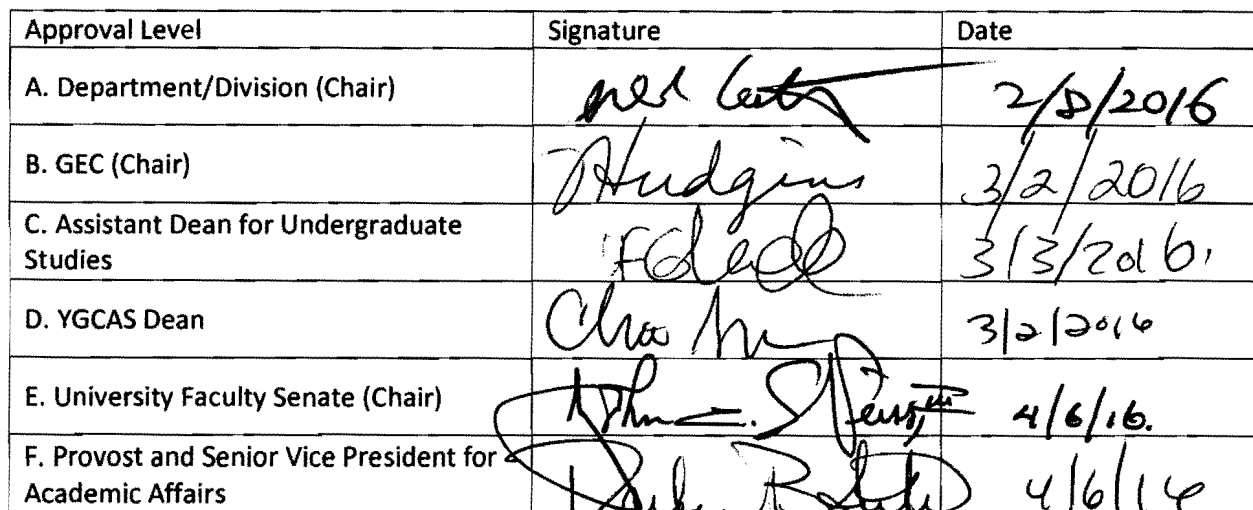 Approval Level Signature Date
A. Department/Division (Chair) 2/8/2016
B. GEC (Chair) Hudgins 3/2/2016
C. Assistant Dean for Undergraduate
Studies 3/3/2016.
D. YGCAS Dean 3/2/2016
E. University Faculty Senate (Chair) 4/6/16.
F. Provost and Senior Vice President for
Academic Affairs 4/6/16